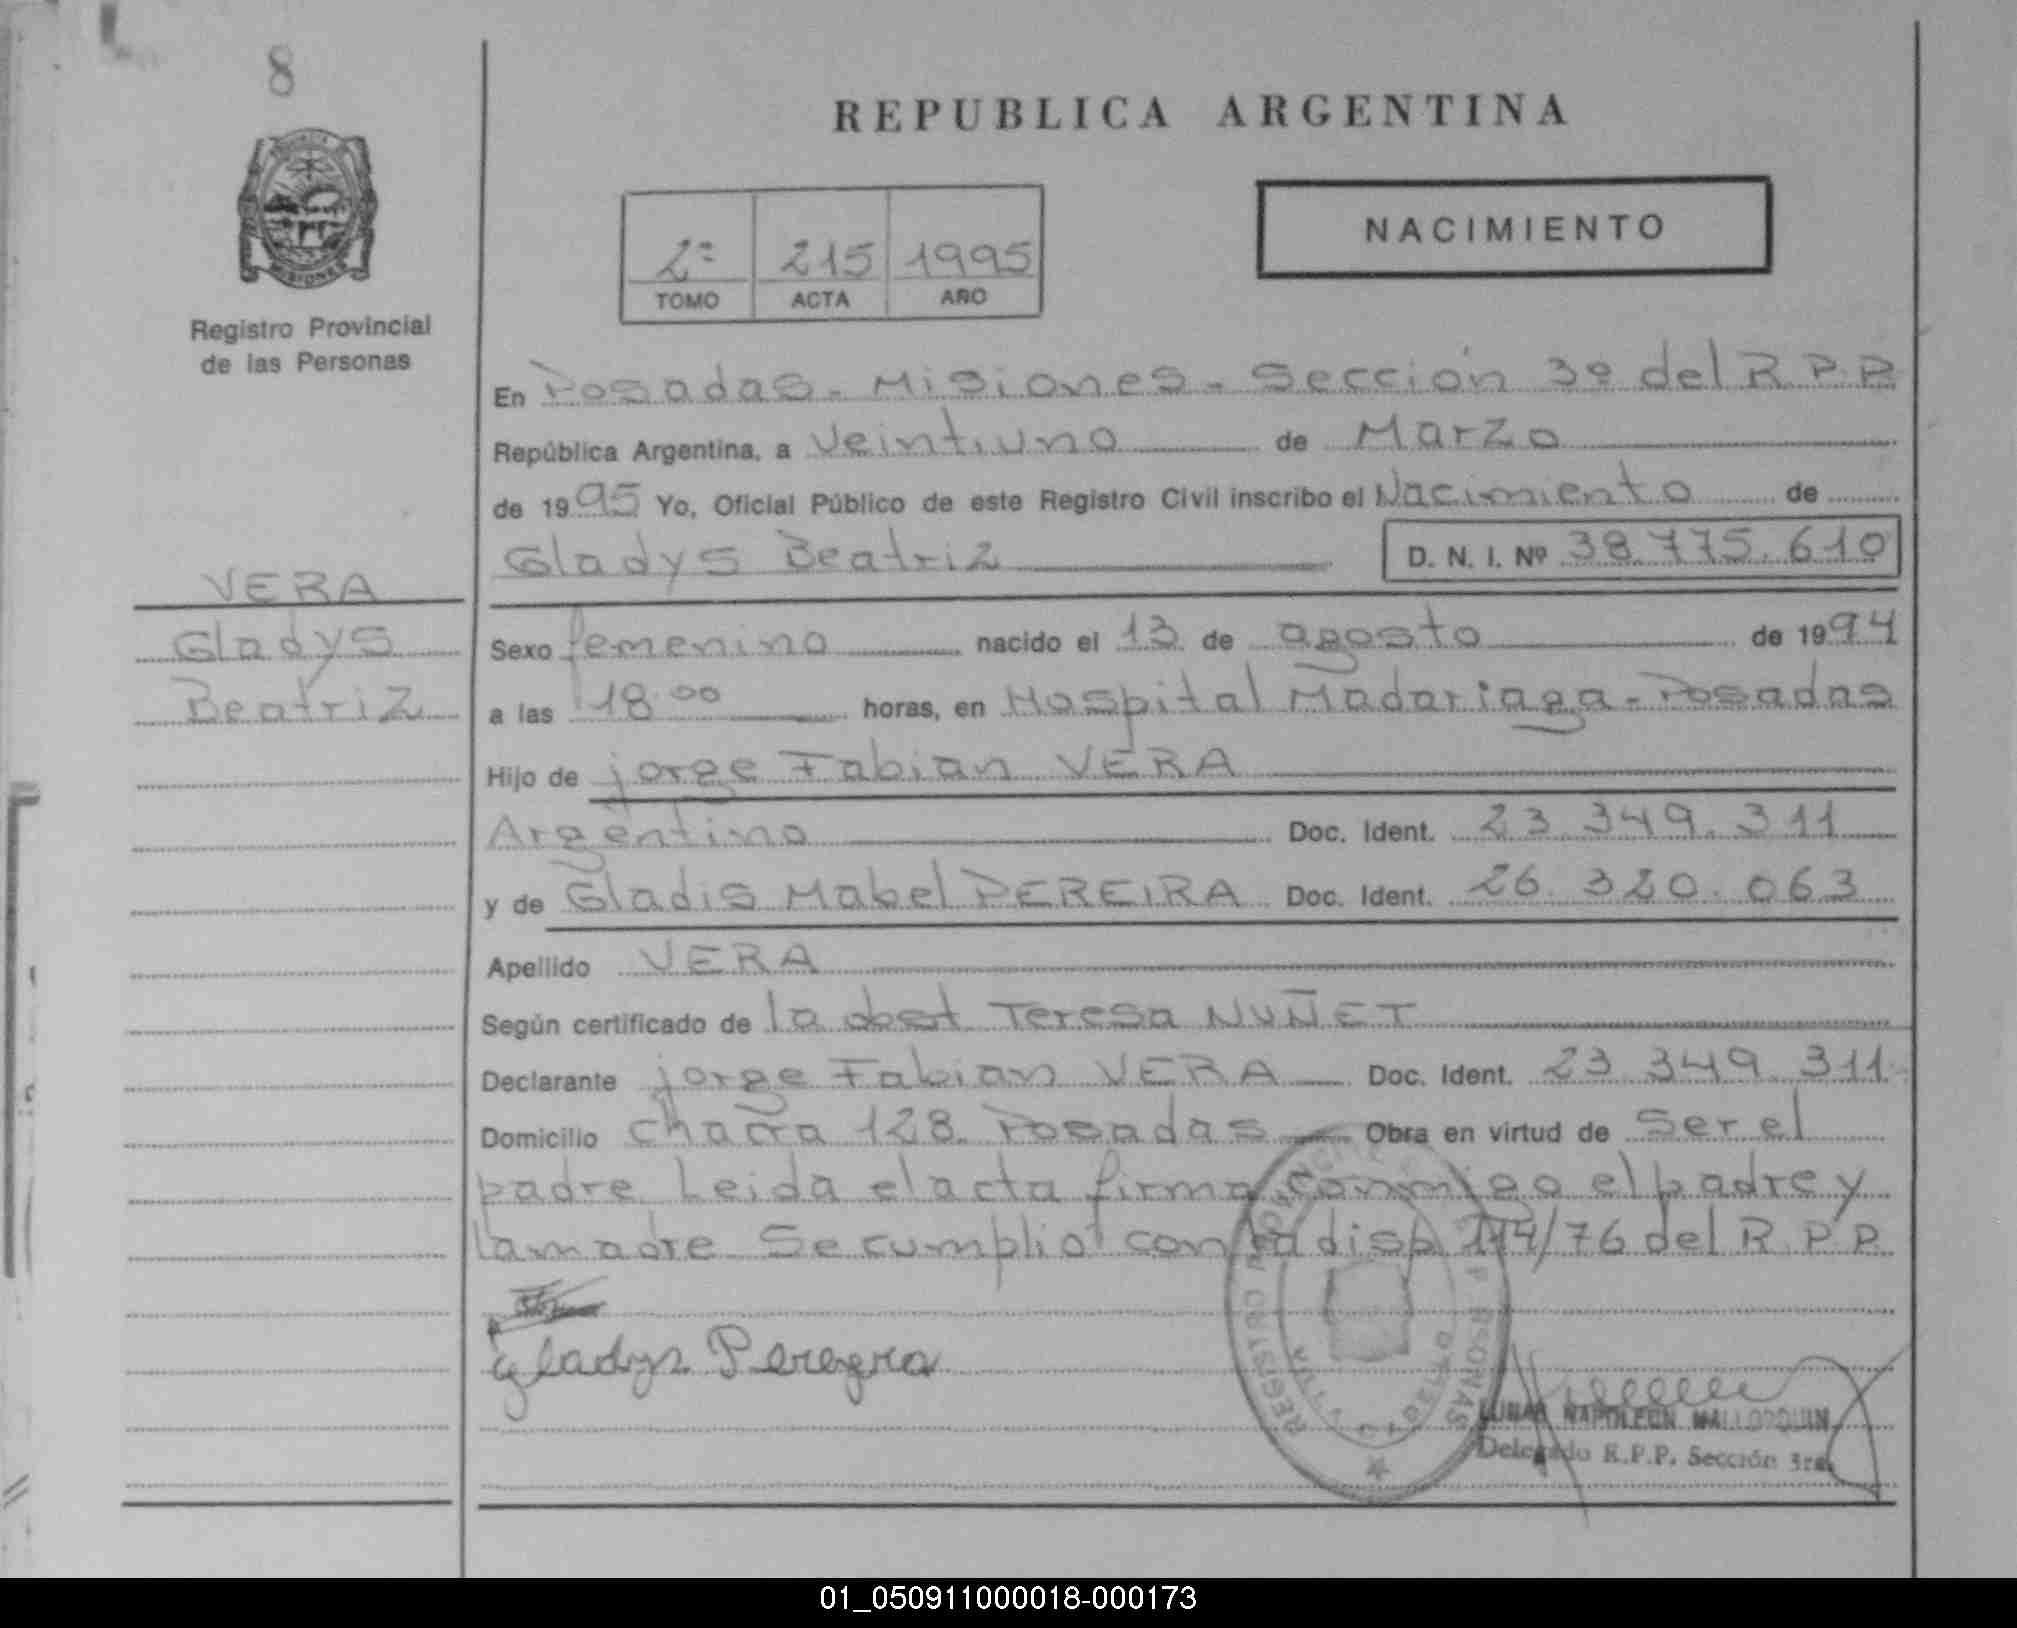 8
REPUBLICA ARGENTINA
MISIONES
Registro Provincial
de las Personas
2º 215 1995
TOMO ACTA AÑO
NACIMIENTO
En Posadas - Misiones - Sección 3º del R.P.P.
República Argentina, a Veintiuno de Marzo
de 1995 Yo, Oficial Público de este Registro Civil inscribo el Nacimiento de
Gladys Beatriz D. N. I. Nº 38.775.610
VERA
Gladys
Beatriz
Sexo femenino nacido el 13 de agosto de 1994
a las 18.00 horas, en Hospital Madariaga - Posadas
Hijo de Jorge Fabian VERA
Argentino Doc. Ident. 23.349.311
y de Gladis Mabel PEREIRA Doc. Ident. 26.320.063
Apellido VERA
Según certificado de la obst Teresa NUÑET
Declarante Jorge Fabian VERA Doc. Ident. 23.349.311
Domicilio Chacra 128. Posadas Obra en virtud de Ser el
padre Leida el acta firma conmigo el padre y
la madre Se cumplió con la disp. 114/76 del R.P.P.
Gladys Pereyra
REGISTRO PROVINCIAL PERSONAS
NAPOLEON MALLORQUIN
Delegado R.P.P. Sección 3ra.
01_050911000018-000173